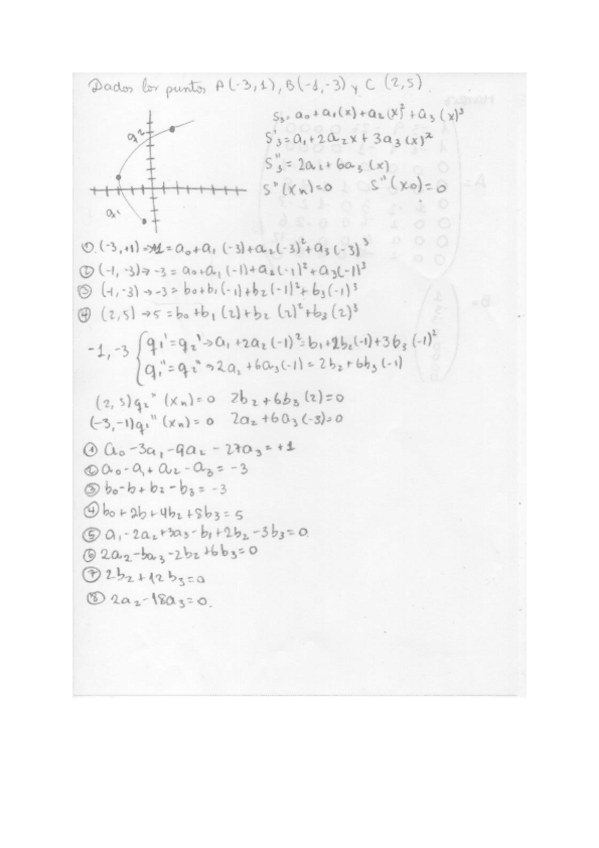 Dados los puntos A(-3,1), B(-1,-3) y C (2,5).
S₃ = a₀+a₁(x)+a₂(x)²+a₃(x)³
S'₃ = a₁+2a₂x+3a₃(x)²
S''₃ = 2a₂+6a₃(x)
S''(xn)=0 S''(x₀)=0
q₂
q₁
① (-3,+1)→1=a₀+a₁(-3)+a₂(-3)²+a₃(-3)³
② (-1,-3)→-3=a₀+a₁(-1)+a₂(-1)²+a₃(-1)³
③ (-1,-3)→-3=b₀+b₁(-1)+b₂(-1)²+b₃(-1)³
④ (2,5)→5=b₀+b₁(2)+b₂(2)²+b₃(2)³
-1,-3 { q₁'=q₂'→a₁+2a₂(-1)²=b₁+2b₂(-1)+3b₃(-1)²
q₁''=q₂''→2a₂+6a₃(-1)=2b₂+6b₃(-1)
(2,5)q₂''(xn)=0 2b₂+6b₃(2)=0
(-3,-1)q₁''(xn)=0 2a₂+6a₃(-3)=0
① a₀-3a₁-9a₂-27a₃=+1
② a₀-a₁+a₂-a₃=-3
③ b₀-b+b₂-b₃=-3
④ b₀+2b+4b₂+8b₃=5
⑤ a₁-2a₂+3a₃-b₁+2b₂-3b₃=0.
⑥ 2a₂-6a₃-2b₂+6b₃=0
⑦ 2b₂+12b₃=0
⑧ 2a₂-18a₃=0.